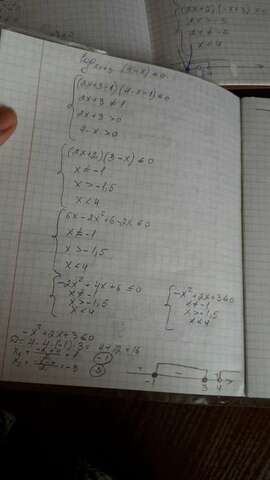 log₂ₓ₊₃ (4-x) ≤ 0
(2x+3-1)(4-x-1) ≤ 0
2x+3 ≠ 1
2x+3 > 0
4-x > 0
(2x+2)(3-x) ≤ 0
x ≠ -1
x > -1,5
x < 4
6x-2x²+6-2x ≤ 0
x ≠ -1
x > -1,5
x < 4
-2x²+4x+6 ≤ 0
x ≠ -1
x > -1,5
x < 4
-x²+2x+3 ≤ 0
x ≠ -1
x > -1,5
x < 4
-x²+2x+3 ≤ 0
D = 4-4·(-1)·3 = 4+12=16
-1
3
+ -
-1 3 4